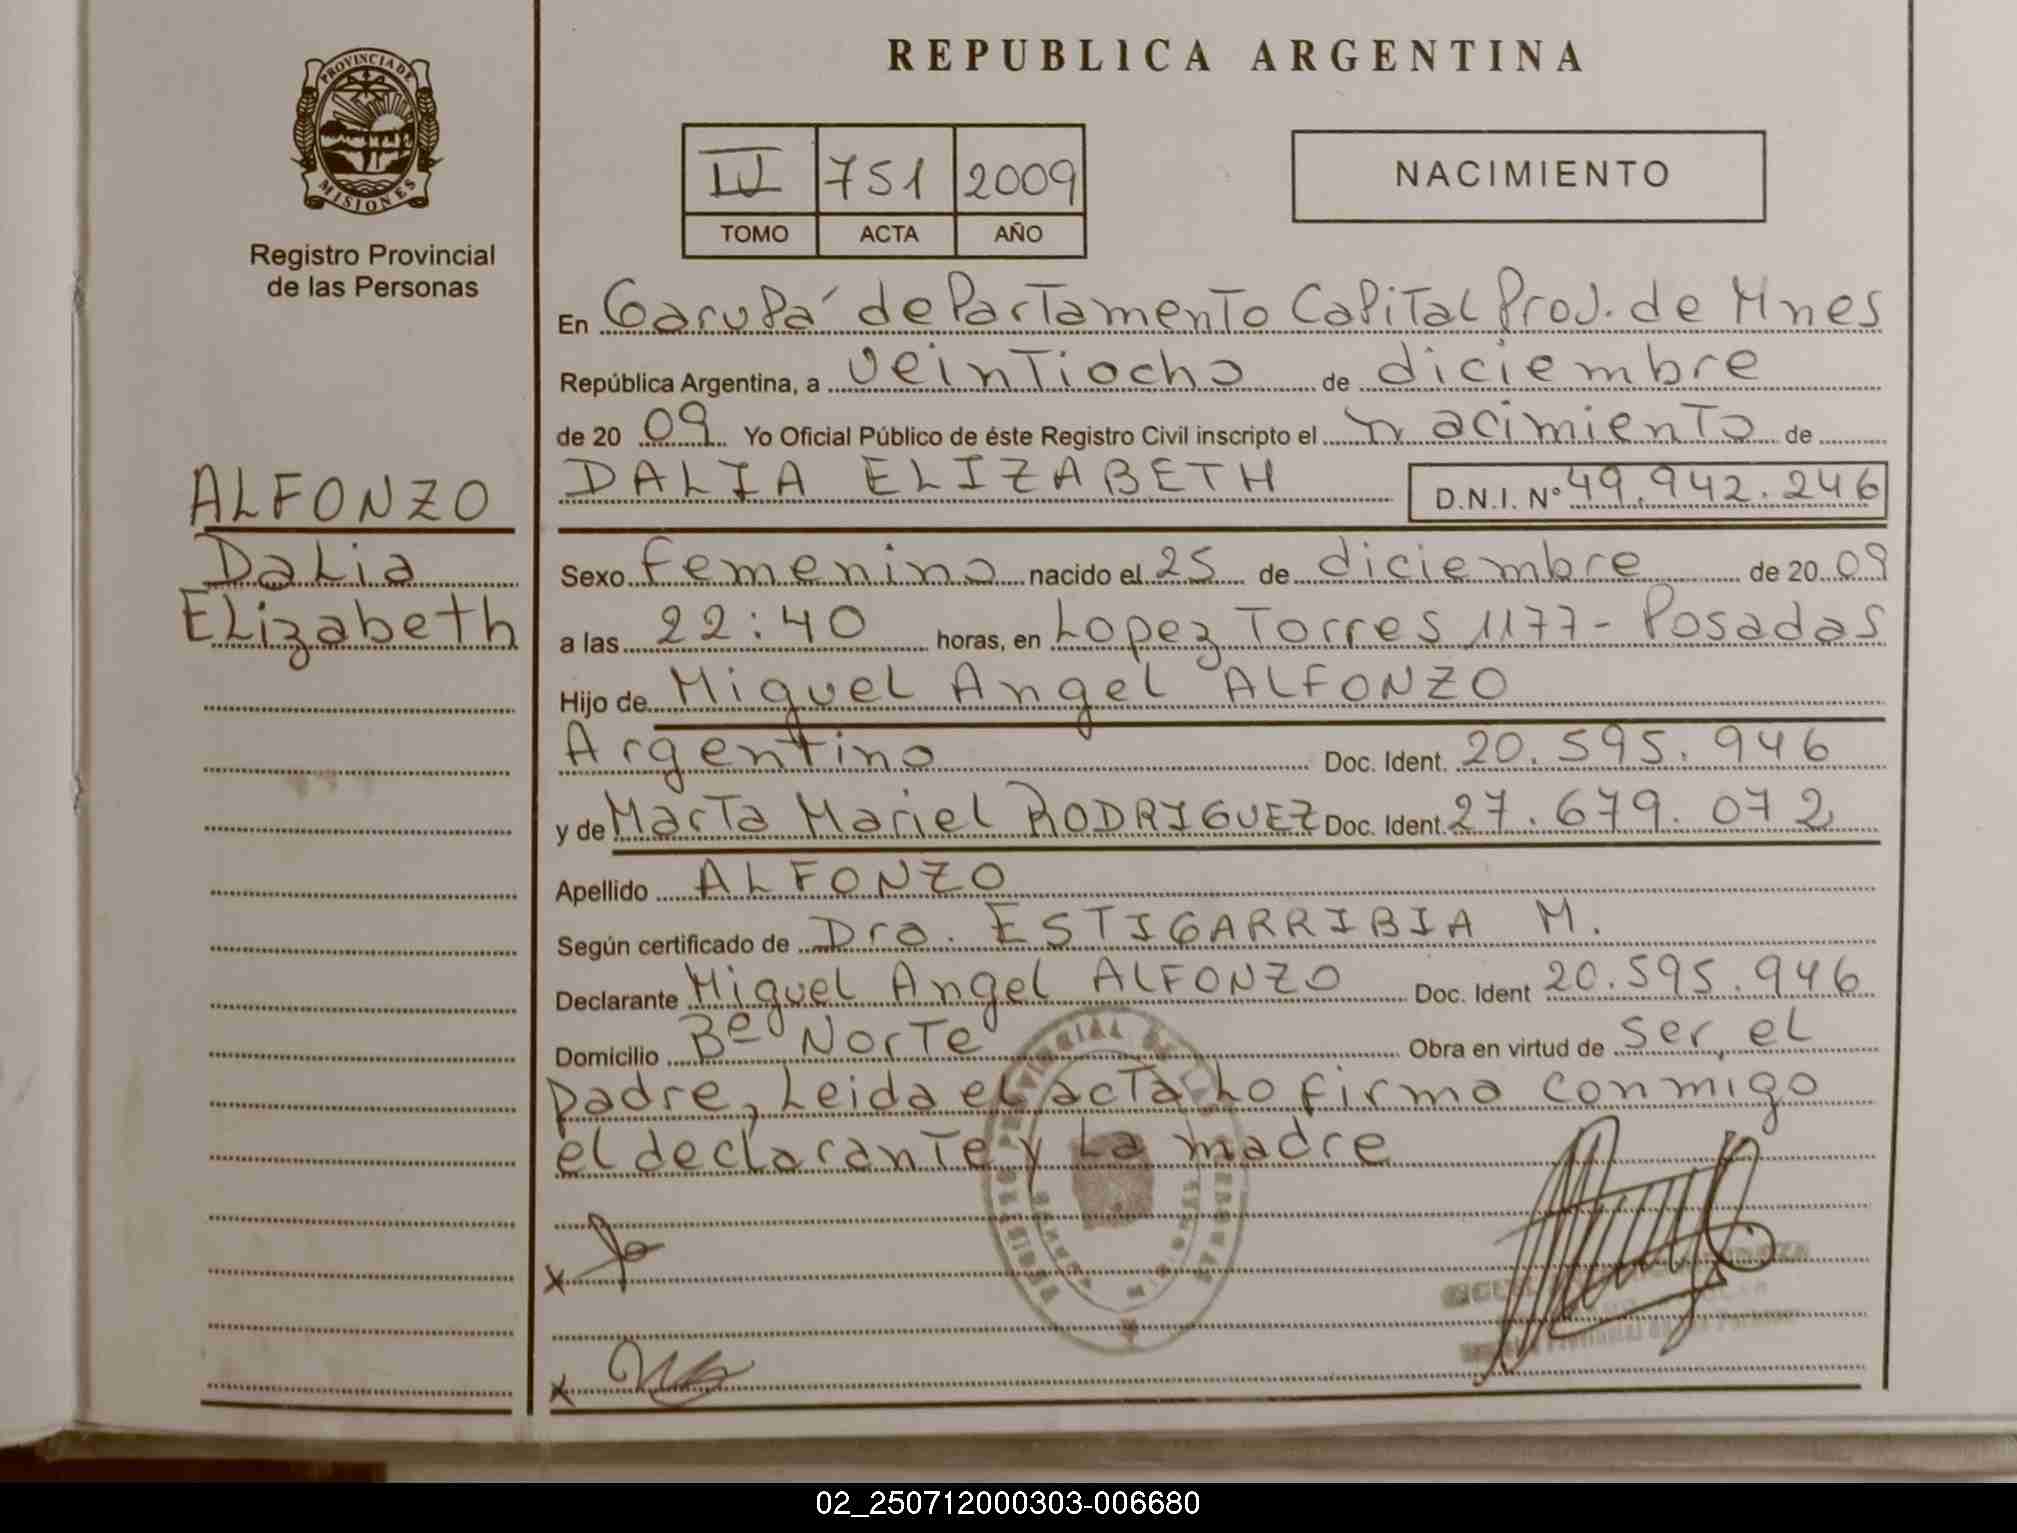 PROVINCIA DE
MISIONES
Registro Provincial
de las Personas
ALFONZO
Dalia
Elizabeth
REPUBLICA ARGENTINA
751 2009
TOMO ACTA AÑO
NACIMIENTO
En Garupá departamento Capital Prov. de Mnes
República Argentina, a veintiocho de diciembre
de 20 09 Yo Oficial Público de éste Registro Civil inscripto el nacimiento de
DALIA ELIZABETH D.N.I. Nº 49.942.246
Sexo femenino nacido el 25 de diciembre de 20 09
a las 22:40 horas, en Lopez Torres 1177 - Posadas
Hijo de Miguel Angel ALFONZO
Argentino Doc. Ident. 20.595.946
y de Marta Mariel RODRIGUEZ Doc. Ident. 27.679.072
Apellido ALFONZO
Según certificado de Dra. ESTIGARRIBIA M.
Declarante Miguel Angel ALFONZO Doc. Ident 20.595.946
Domicilio Bº Norte Obra en virtud de ser, el
padre, Leida el acta Lo firma conmigo
el declarante y La madre
x
x
02_250712000303-006680